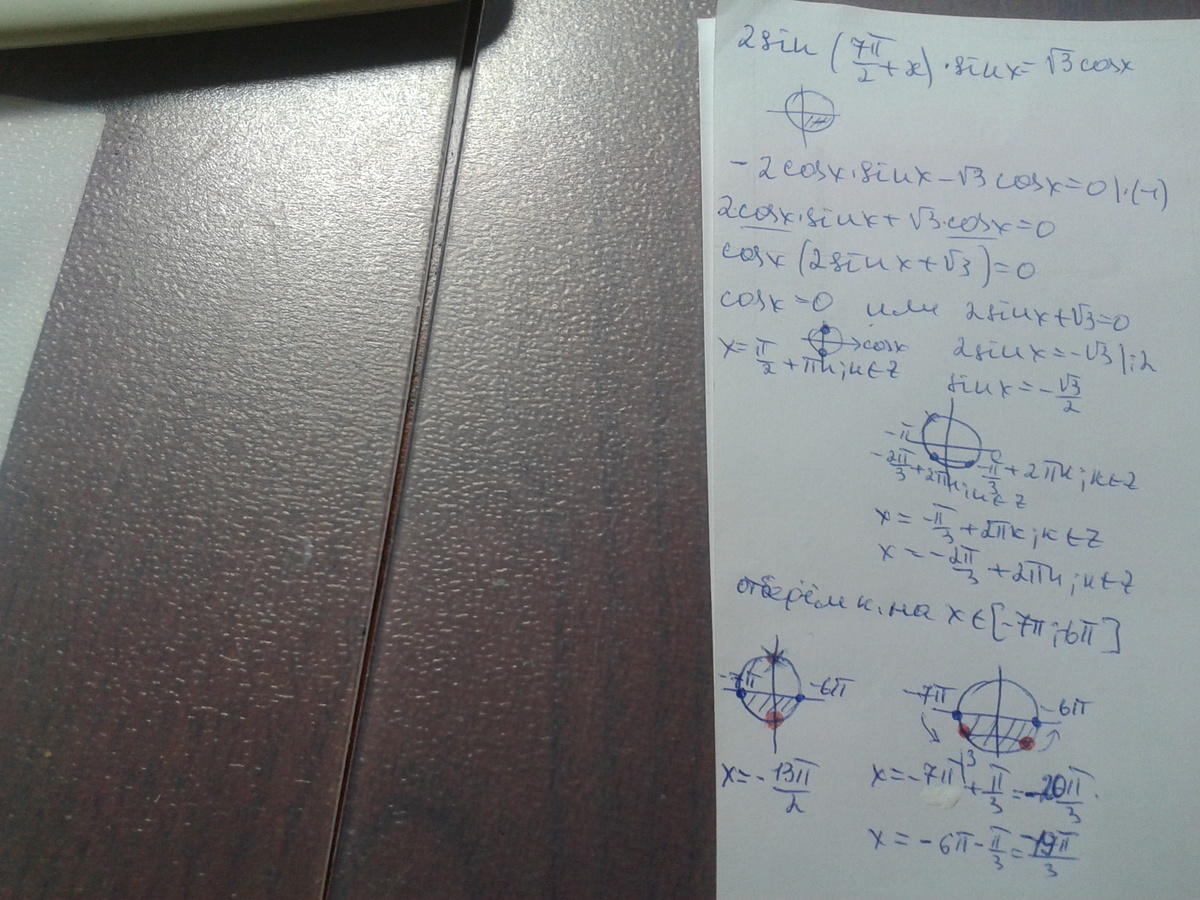 2sin (7π/2 + x) · sinx = √3 cosx
- 2cosx·sinx - √3 cosx = 0 |·(-1)
2cosx·sinx + √3·cosx = 0
cosx (2sinx + √3) = 0
cosx = 0 или 2sinx + √3 = 0
cosx
x = π/2 + πk; k∈Z 2sinx = -√3 |:2
sinx = - √3/2
-π 0
- 2π/3 + 2πk; k∈Z - π/3 + 2πk; k∈Z
x = - π/3 + 2πk; k∈Z
x = - 2π/3 + 2πk; k∈Z
отберём к. на x∈[-7π;-6π]
-7π -6π -7π -6π
x = - 13π/2 x = -7π + π/3 = - 20π/3
x = -6π - π/3 = - 19π/3